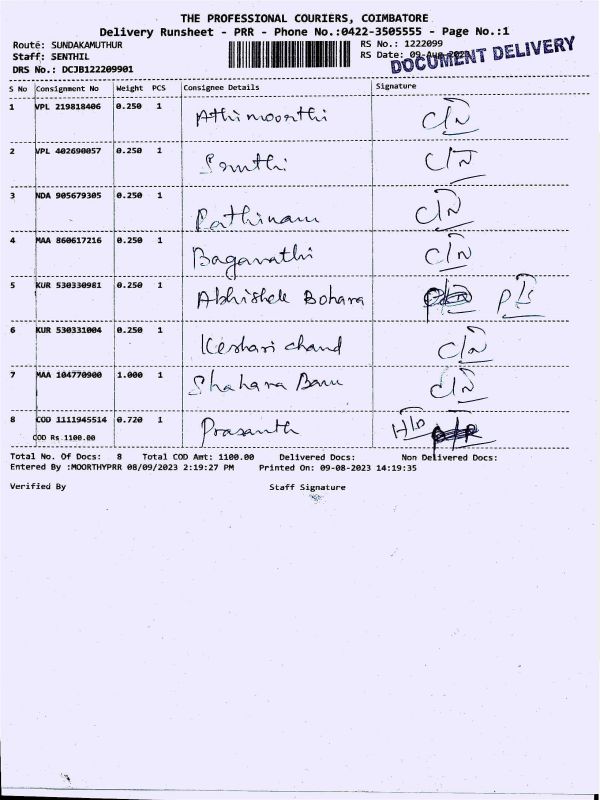 THE PROFESSIONAL COURIERS, COIMBATORE
Delivery Runsheet - PRR - Phone No.:0422-3505555 - Page No.:1
Route: SUNDAKAMUTHUR RS No.: 1222099
Staff: SENTHIL RS Date: 09-Aug-2023
DOCUMENT DELIVERY
DRS No.: DCJB122209901
S No Consignment No Weight PCS Consignee Details Signature
1 VPL 219818406 0.250 1 Athimoorthi C/N
2 VPL 402690057 0.250 1 C/N
3 NDA 905679305 0.250 1 Rathinam C/N
4 MAA 860617216 0.250 1 Bagavathi C/N
5 KUR 530330981 0.250 1 Abhishek Bohara
6 KUR 530331004 0.250 1 Keshari chand C/N
7 MAA 104770900 1.000 1 Shahara Banu C/N
8 COD 1111945514 0.720 1 Prasanth
COD Rs 1100.00
Total No. Of Docs: 8 Total COD Amt: 1100.00 Delivered Docs: Non Delivered Docs:
Entered By :MOORTHYPRR 08/09/2023 2:19:27 PM Printed On: 09-08-2023 14:19:35
Verified By Staff Signature